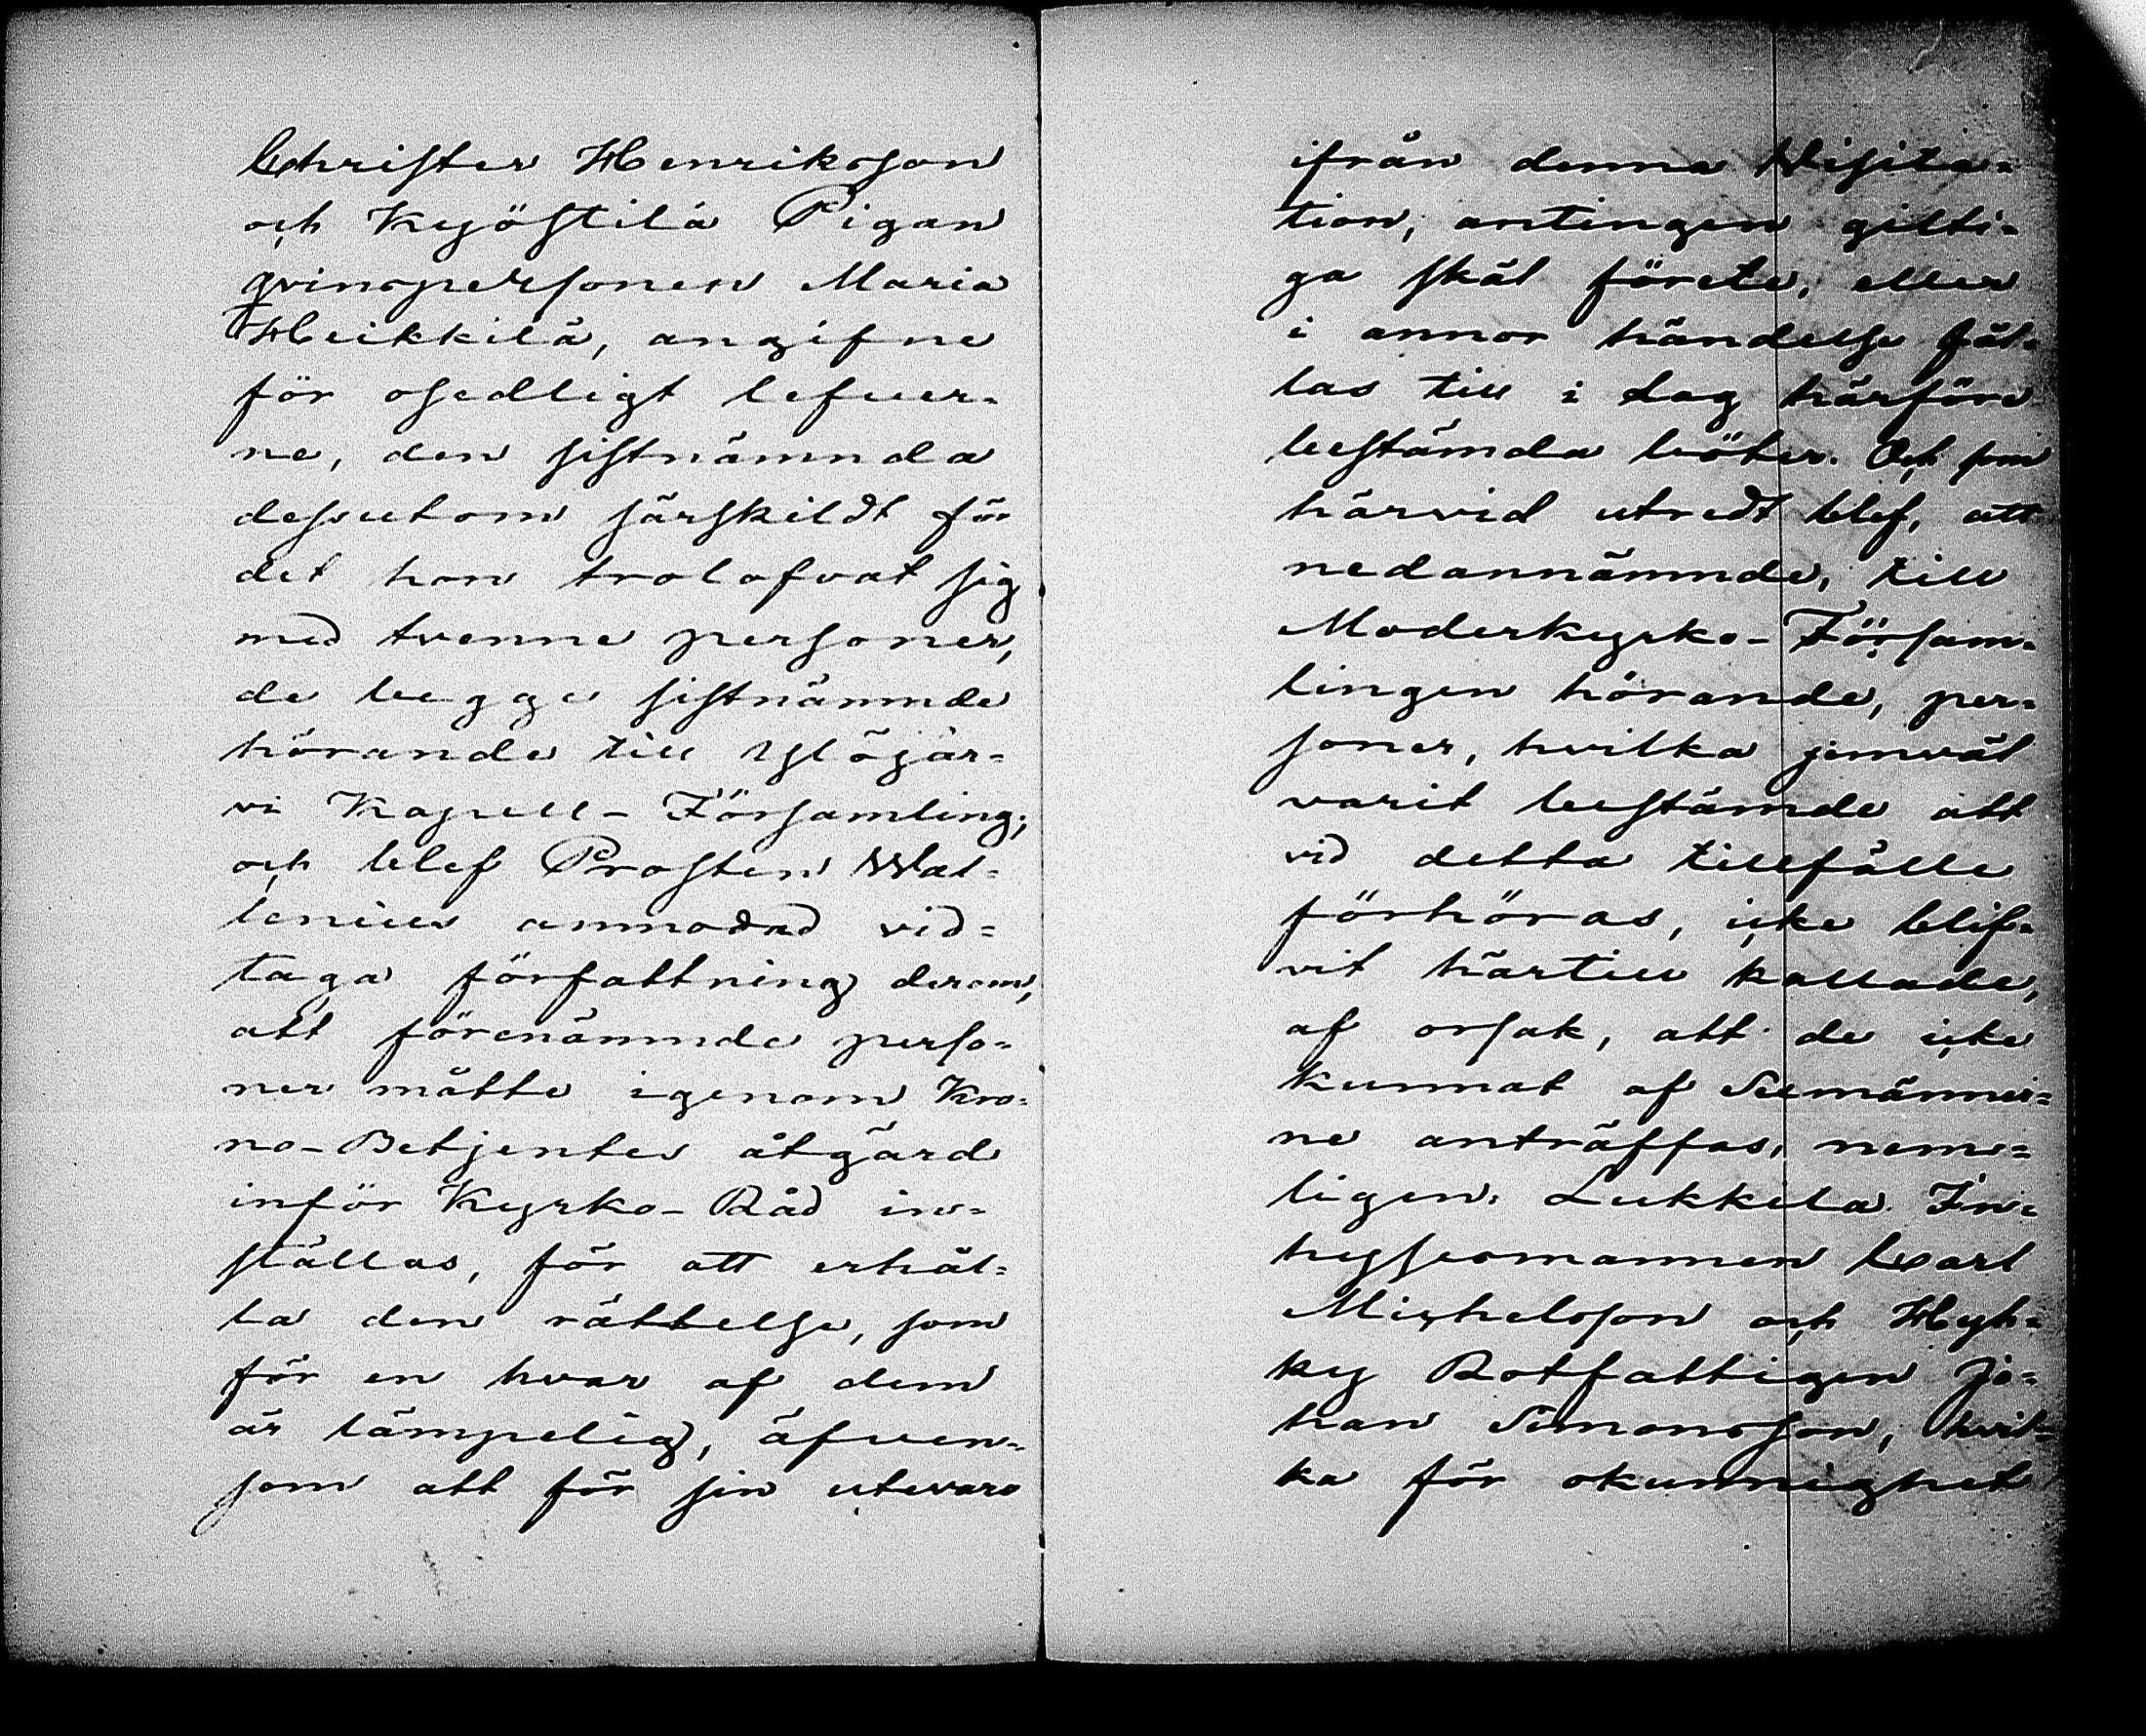 Christer Henriksson
och Kyöstilä Pigan
qvinspersonen Maria
Heikkilä, angifne
för osedligt lefver-
ne, den sistnämnda
dessutom särskildt för
det hon trolofvat sig
med tvenne personer,
de begge sistnämnde
hörande till Ylöjär-
vi Kapell-Församling;
och blef Prosten Wal-
lenius anmodad vid-
taga författning derom,
att förenämnde perso-
ner måtte igenom Kro-
no-Betjentes åtgärd
inför Kyrko-Råd in-
ställas, för att erhål-
la den rättelse, som
för en hvar af dem
är lämpelig, äfven-
som att för sin utevaro
ifrån denna Visita-
tion, antingen gilti-
ga skäl förete, eller
i annor händelse fäl-
las till i Lag härföre
bestämda böter. Och som
härvid utredt blef, att
nedannämnde, till
Moderkyrko-Försam-
lingen hörande, per-
soner, hvilka jemväl
varit bestämde att
vid detta tillfälle
förhöras, icke blif-
vit härtill kallade,
af orsak, att de icke
kunnat af Sexmänner-
ne anträffas, nem-
ligen: Lukkila In-
hysesmannen Carl
Michelsson och Hyh-
ky Rotfattigen Jo-
han Simonsson, hvil-
ka för okunnighet